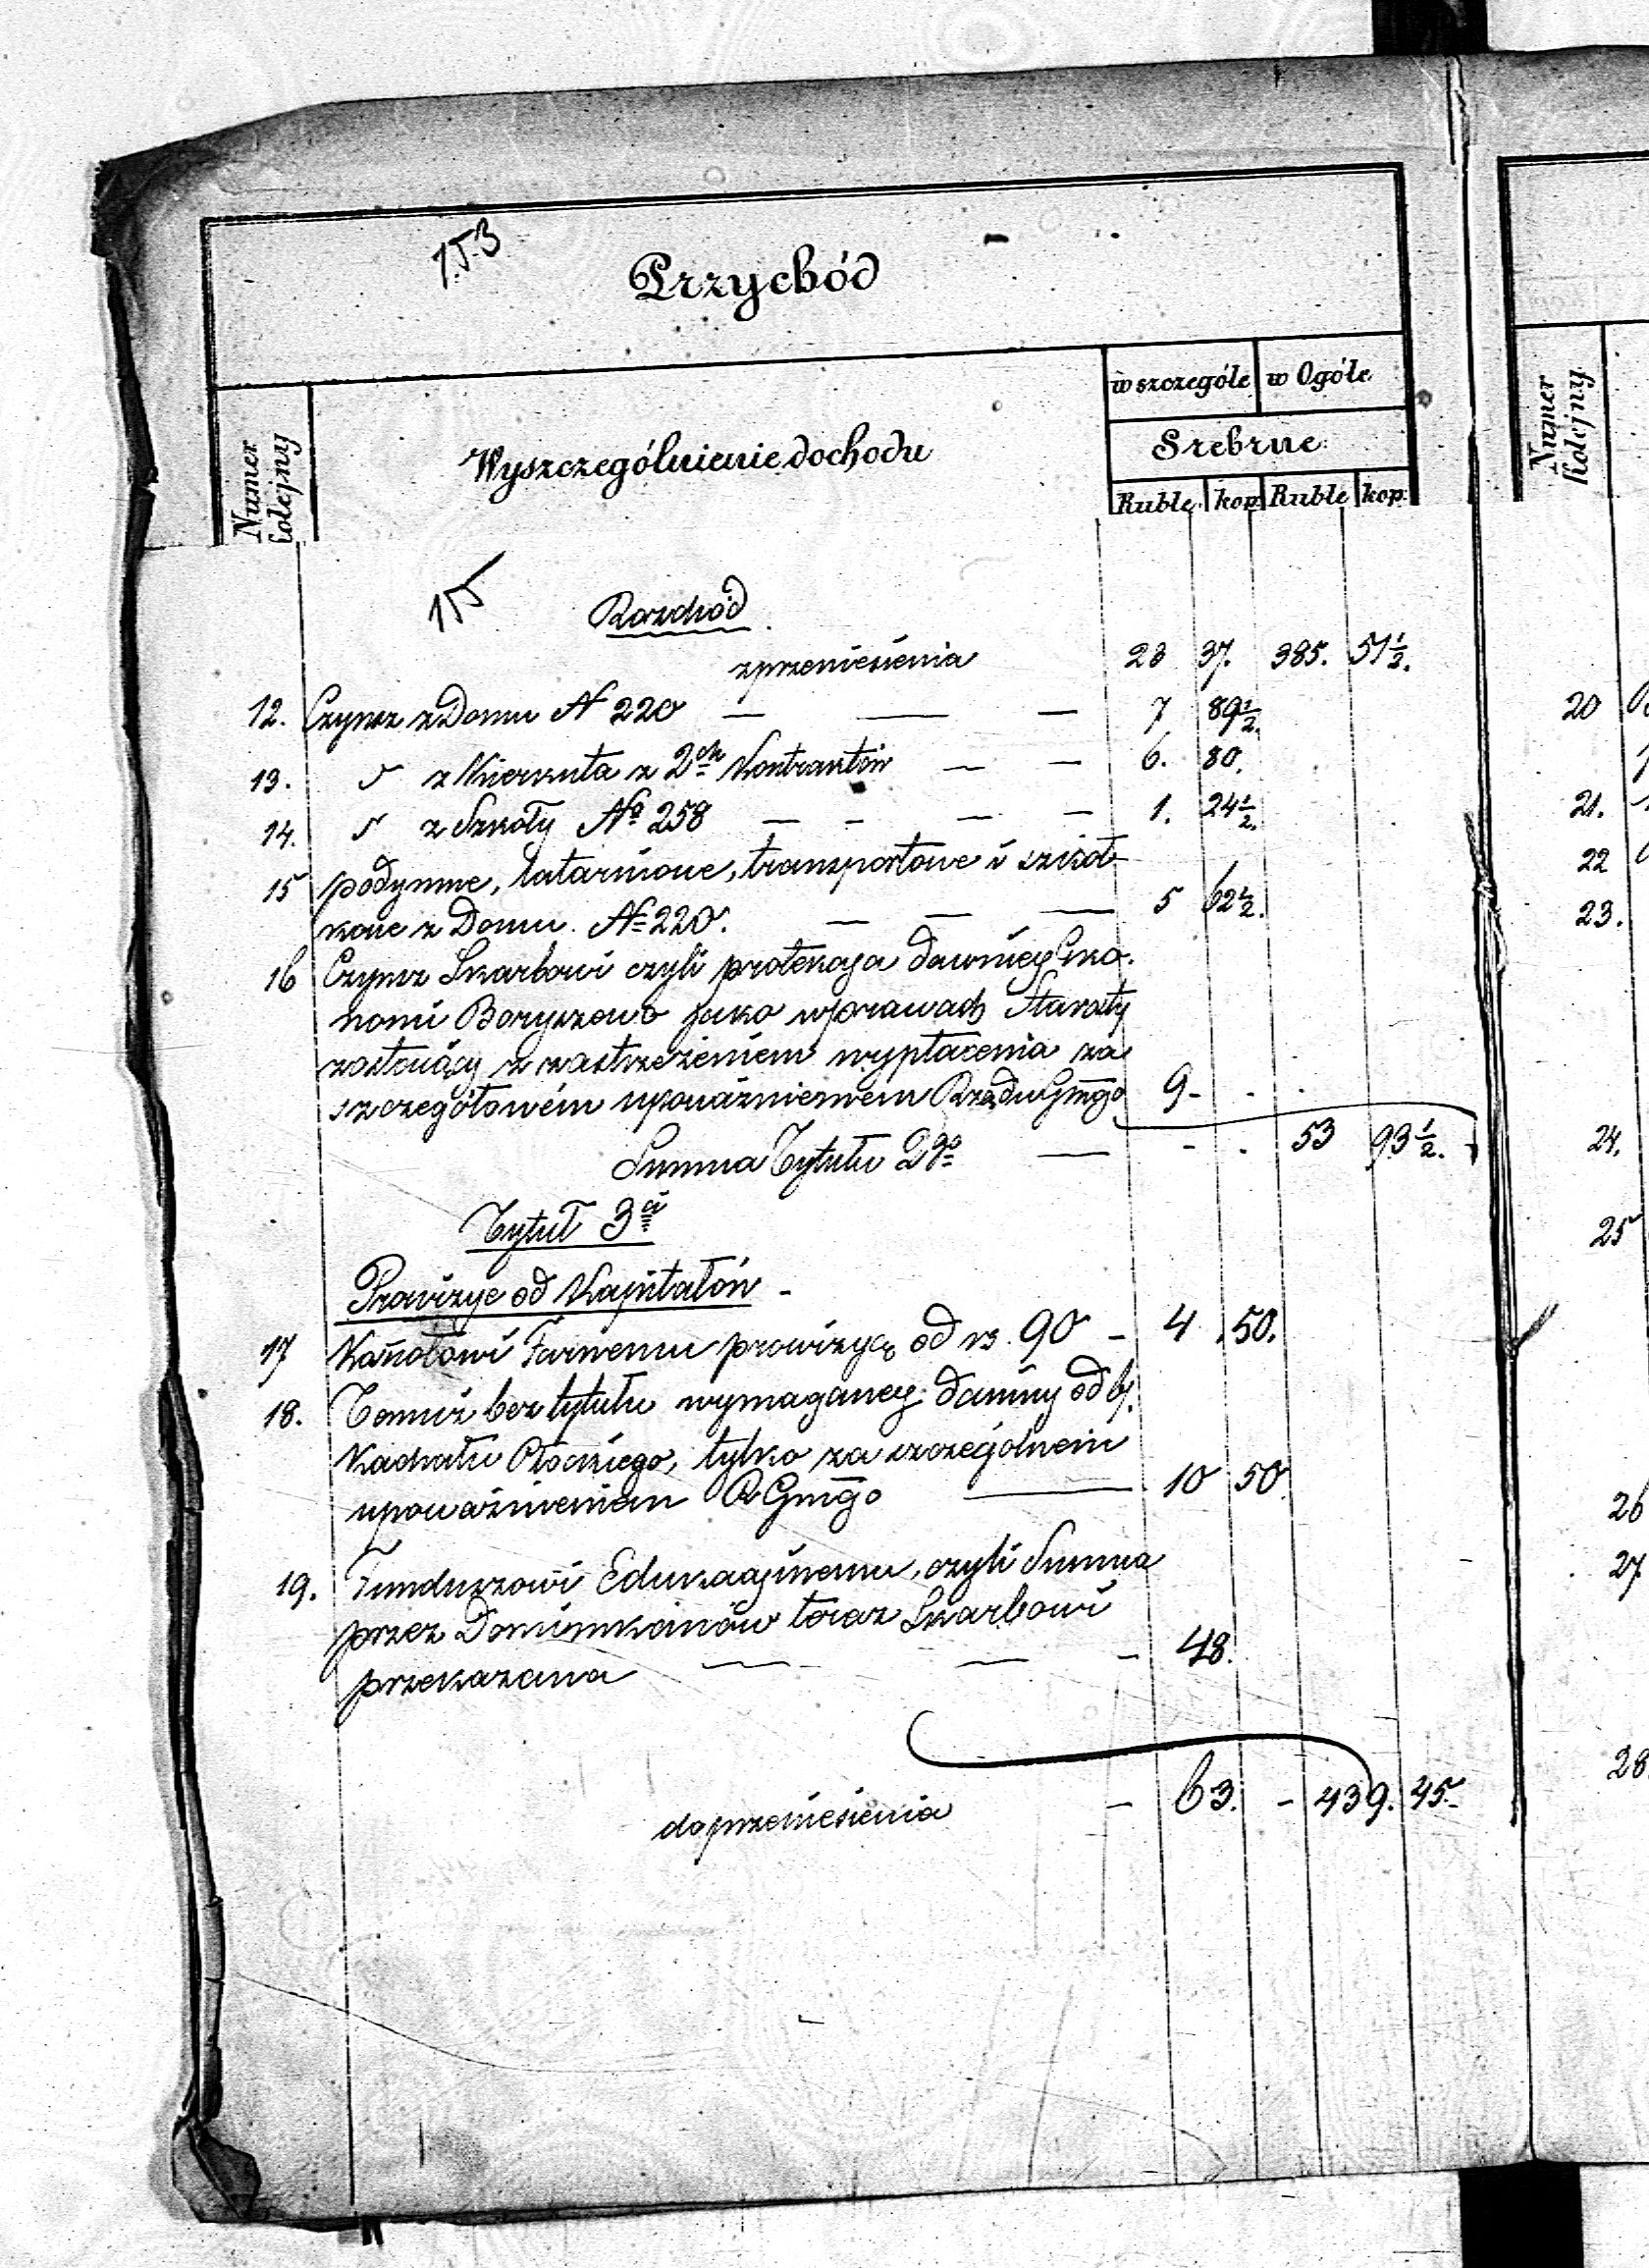 153
Przychód
Numer kolejny
Wyszczególnienie dochodu
w szczególe w Ogóle
Srebrne
Ruble kop. Ruble kop:
155
Rozchód
z przeniesienia 23 37. 385. 51½.
12. Czynsz z Domu N 220 — — — 7 89½.
13. " z Kierkuta z 2ch Kontraktów — — 6. 80.
14. " z Szkoły No 258 — - — — 1. 24½.
15 podymne, latarniowe, transportowe i szkół-
kowe z Domu N 220. — — — 5 62½.
16 Czynsz Skarbowi czyli protekcya dawniey Eko-
nomi Boryszewo jako w prawach Starosty
zostający z zastrzeżeniem wypłacenia za
szczegółowém upoważnieniem Rządu Gmgo 9 - . .
Summa Tytułu 2go — - . 53 93½.
Tytuł 3ci
Prowizye od Kapitałów -
17 Kościołowi Farnemu prowizyę od rs. 90 - 4 . 50.
18. Temuż bez tytułu wymaganey daniny od b.
Kachału Płockiego, tylko za szczególnem
upoważnieniem R Gmgo — 10 50
19. Funduszowi Edukacyjnemu, czyli Summa
przez Dominikanów teraz Skarbowi
przekazana — — - 48.
do przeniesienia - 63. - 439. 45.-
Numer kolejny
20
21.
22
23.
24.
25
26
27
28.